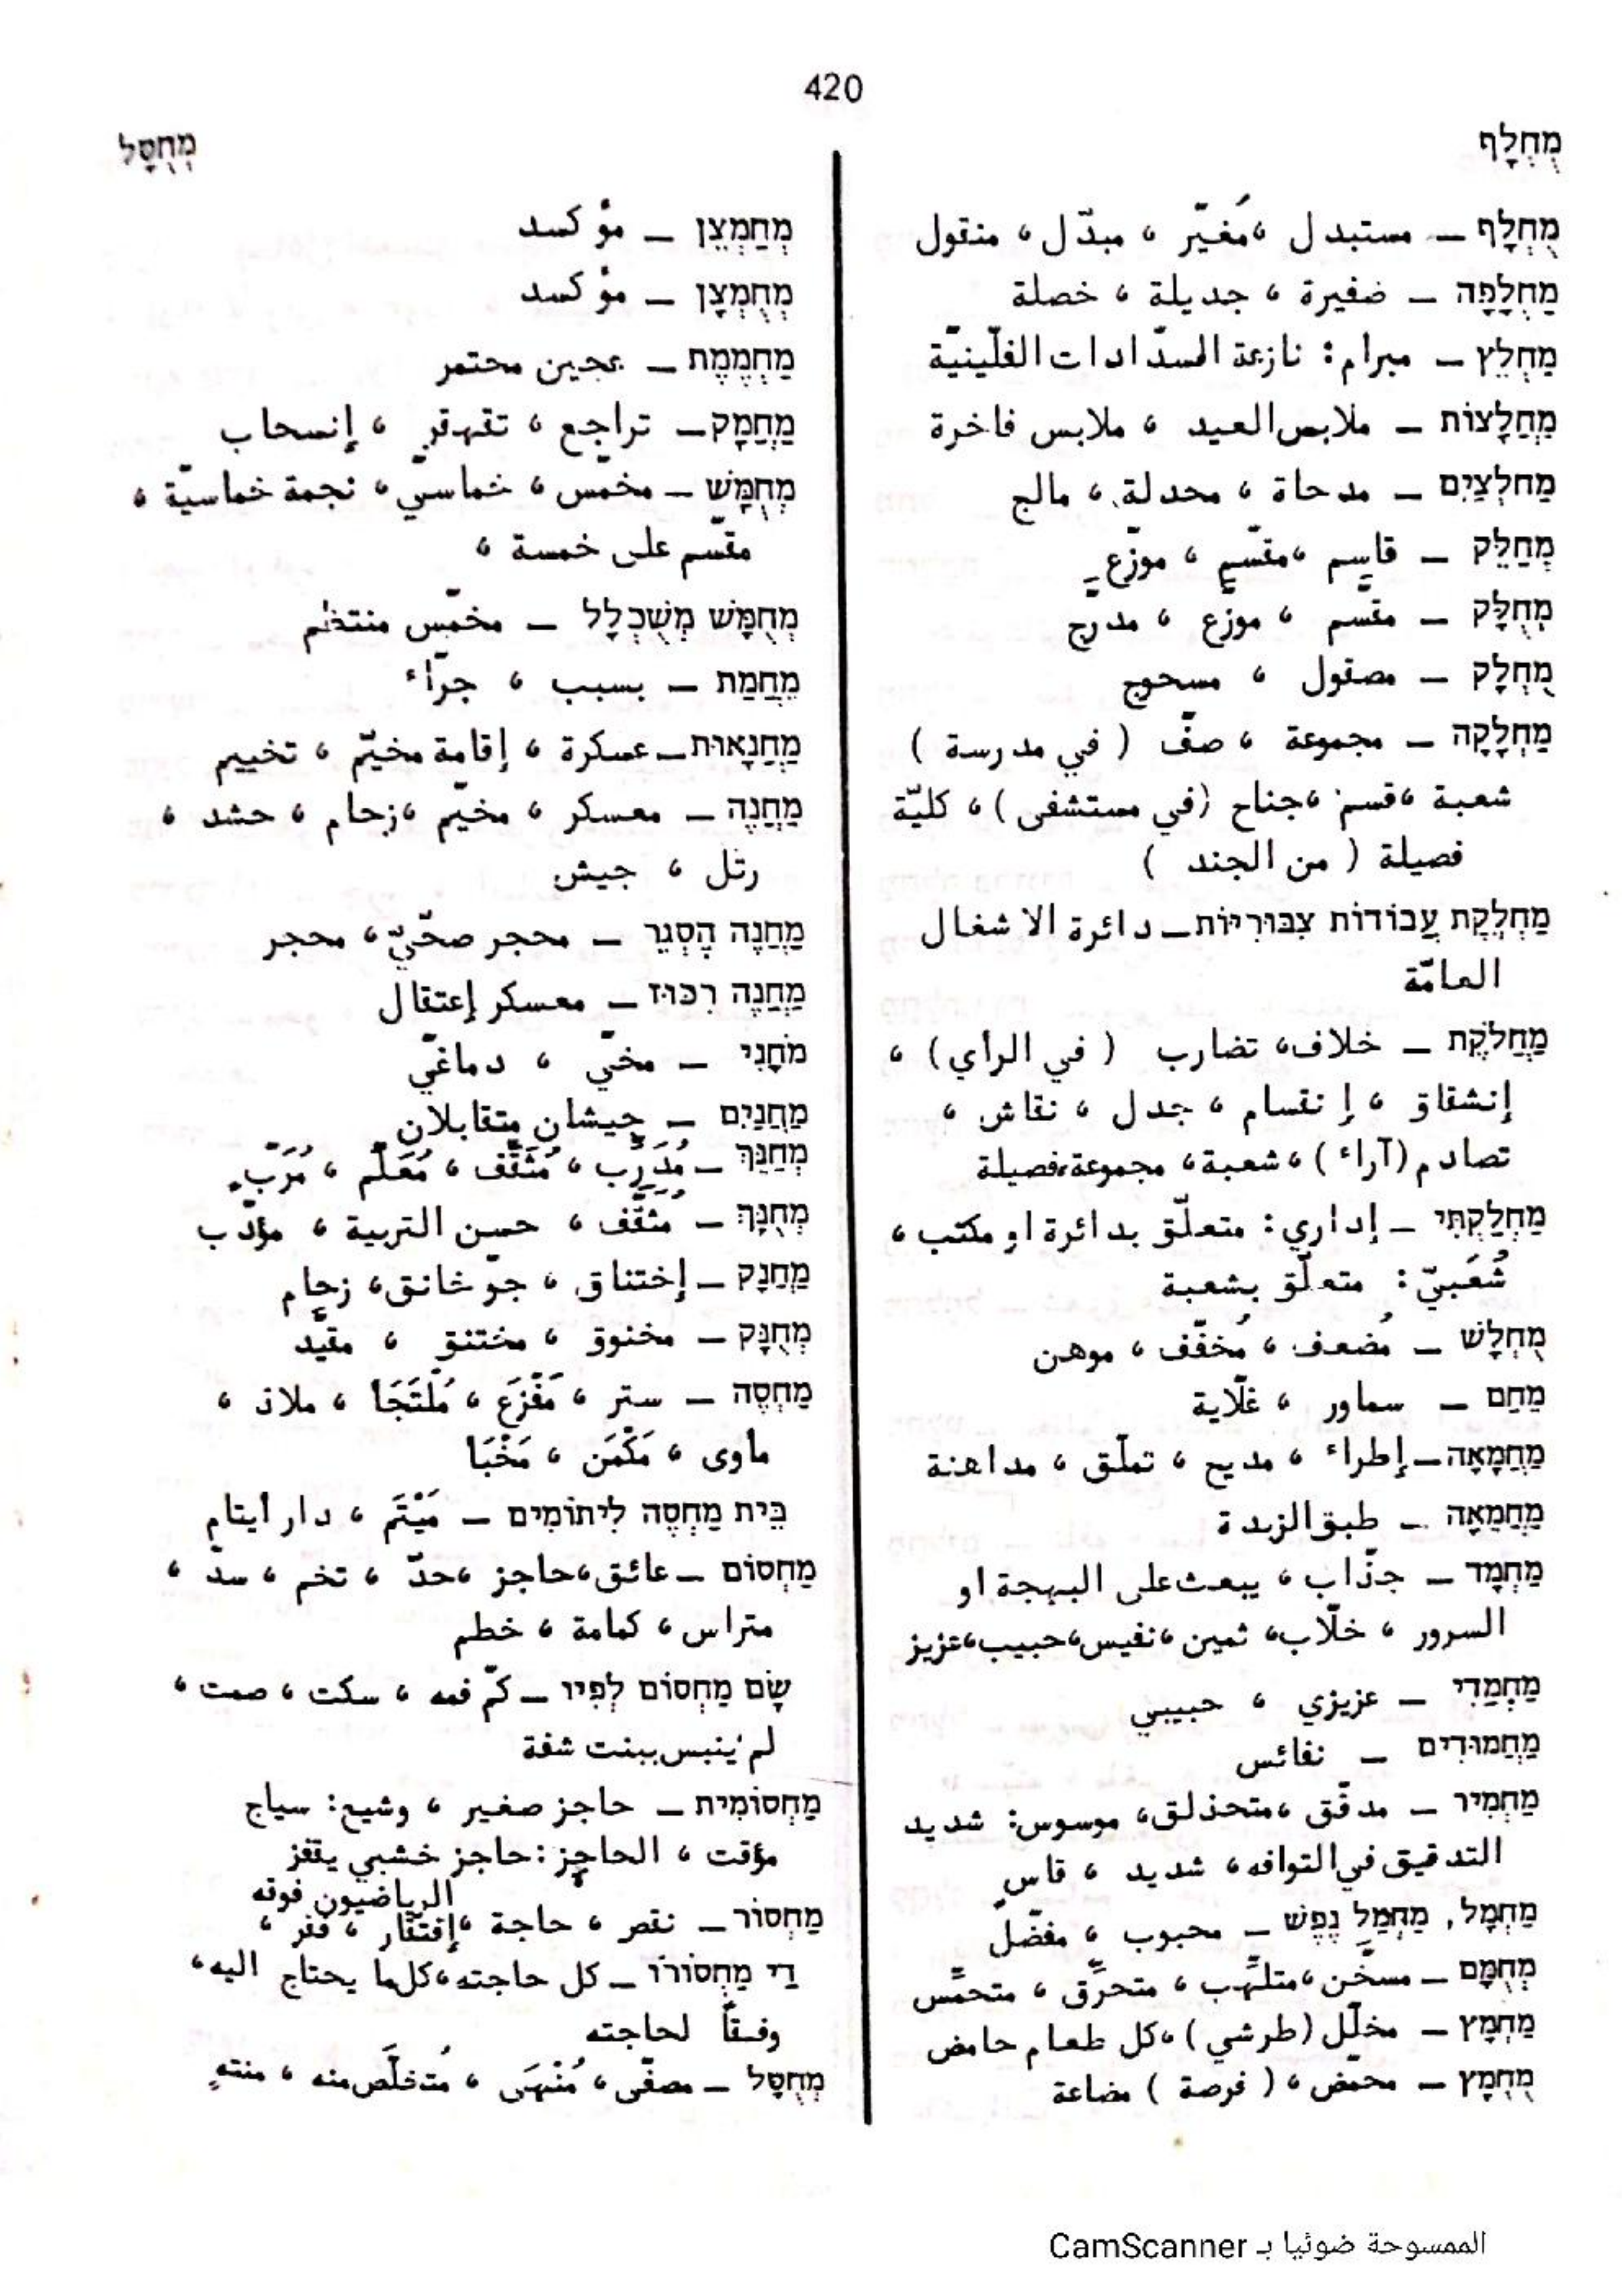 420
מֻחְלָף
מְחֻסָּל
מֻחְלָף – مستبدل ، مُغيّر ، مبدّل ، منقول
מַחְלָפָה – ضفيرة ، جديلة ، خصلة
מַחְלֵץ – مبرام : نازعة السدّادات الفلّينيّة
מַחֲלָצוֹת – ملابس العيد ، ملابس فاخرة
מַחלְצַיִם – مدحاة ، محدلة ، مالج
מְחַלֵּק – قاسِم ، مقسِّم ، موزِّع
מְחֻלָּק – مقسَّم ، موزَّع ، مدرّج
מֻחְלָק – مصقول ، مسحوج
מַחְלָקָה – مجموعة ، صفّ ( في مدرسة )
شعبة ، قسم ، جناح (في مستشفى ) ، كليّة
فصيلة ( من الجند )
מַחְלֶקֶת עֲבוֹדוֹת צִבּוּרִיּוֹת – دائرة الاشغال
العامّة
מַחֲלֹקֶת – خلاف ، تضارب ( في الرأي ) ،
إنشقاق ، إنقسام ، جدل ، نقاش ،
تصادم (آراء ) ، شعبة ، مجموعة ، فصيلة
מַחְלַקְתִּי – إداري : متعلّق بدائرة او مكتب ،
شُعَبيّ : متعلّق بشعبة
מֻחְלָשׁ – مُضعف ، مُخفّف ، موهن
מֵחַם – سماور ، غلّاية
מַחֲמָאָה – إطراء ، مديح ، تملّق ، مداهنة
מַחֲמֵאָה – طبق الزبدة
מַחְמָד – جذّاب ، يبعث على البهجة او
السرور ، خلّاب ، ثمين ، نفيس ، حبيب ، عزيز
מַחְמַדִּי – عزيزي ، حبيبي
מַחֲמוּדִים – نفائس
מַחְמִיר – مدقّق ، متحذلق ، موسوس : شديد
التدقيق في التوافه ، شديد ، قاسٍ
מַחְמָל, מַחְמַל נֶפֶשׁ – محبوب ، مفضّل
מְחֻמָּם – مسخّن ، متلهّب ، متحرّق ، متحمّس
מַחְמָץ – مخلّل (طرشي ) ، كل طعام حامض
מֻחְמָץ – محمّض ، ( فرصة ) مضاعة
מְחַמְצֵן – مؤكسد
מְחֻמְצָן – مؤكسد
מַחְמֶמֶת – عجين مختمر
מַחֲמָק – تراجع ، تقهقر ، إنسحاب
מְחֻמָּשׁ – مخمّس ، خماسيّ ، نجمة خماسيّة ،
مقسّم على خمسة ،
מְחֻמָּשׁ מְשֻׁכְלָל – مخمّس منتظم
מֵחֲמַת – بسبب ، جرّاء
מַחֲנָאוּת – عسكرة ، إقامة مخيّم ، تخييم
מַחֲנֶה – معسكر ، مخيّم ، زحام ، حشد ،
رتل ، جيش
מַחֲנֶה הֶסְגֵּר – محجر صحّيّ ، محجر
מַחֲנֶה רִכּוּז – معسكر إعتقال
מֹחָנִי – مخيّ ، دماغيّ
מַחֲנַיִם – جيشان متقابلان
מְחַנֵּךְ – مُدَرِّب ، مُثَقِّف ، مُعَلِّم ، مُرَبٍّ
מְחֻנָּךְ – مُثَقَّف ، حسن التربية ، مؤدّب
מַחֲנָק – إختناق ، جوّ خانق ، زحام
מְחֻנָּק – مخنوق ، مختنق ، مقيّد
מַחְסֶה – ستر ، مَفْزَع ، مُلْتَجَا ، ملاذ ،
مأوى ، مَكْمَن ، مَخْبَا
בֵּית מַחְסֶה לִיתוֹמִים – مَيْتَم ، دار أيتام
מַחְסוֹם – عائق ، حاجز ، حدّ ، تخم ، سدّ ،
متراس ، كمامة ، خطم
שָׂם מַחְסוֹם לְפִיו – كمّ فمه ، سكت ، صمت ،
لم ينبس ببنت شفة
מַחְסוֹמִית – حاجز صغير ، وشيع : سياج
مؤقت ، الحاجز : حاجز خشبي يقفز
الرياضيون فوقه
מַחְסוֹר – نقص ، حاجة ، إفتقار ، فقر ،
דֵּי מַחְסוֹרוֹ – كل حاجته ، كل ما يحتاج اليه ،
وفقاً لحاجته
מְחֻסָּל – مصفّى ، مُنْهَى ، مُتخلَّص منه ، منتهٍ
الممسوحة ضوئيا بـ CamScanner